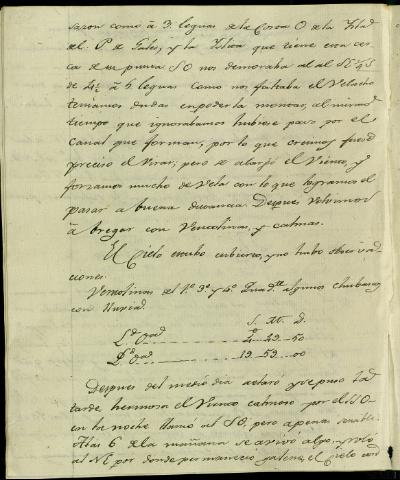 sazon como à 3. leguas de la Costa O de la Ysla
del P. de Gales, y la Yslica que tiene esa cer-
ca de su punta SO nos demoraba al
de à 5 leguas como nos faltaba el Velacho
teniamos dudas en poder la montar, al mismo
tiempo que ignorabamos hubiese paso por el
Canal que forman, por lo que creimos fuese
preciso el Virar; pero se alargó el Viento, y
forzamos mucho de Vela con lo que logramos el
pasar a buena distancia. Despues Volvimos
à bregar con Ventolinas, y calmas.
El Cielo estubo cubierto, y no hubo observa-
ciones.
Ventolinas del 1º 3º y 4º Quadte algunos chubascos
con lluvia.
S. M. D.
2..29..50
19..59..00
Despues del medio dia aclaró y se puso la
tarde hermosa el Viento calmoso por el SO
en la noche llamo al SO, pero apenas
A las 6 de la mañana se avivó algo, y rolo
al NE por donde permanecio galeno, el Cielo con